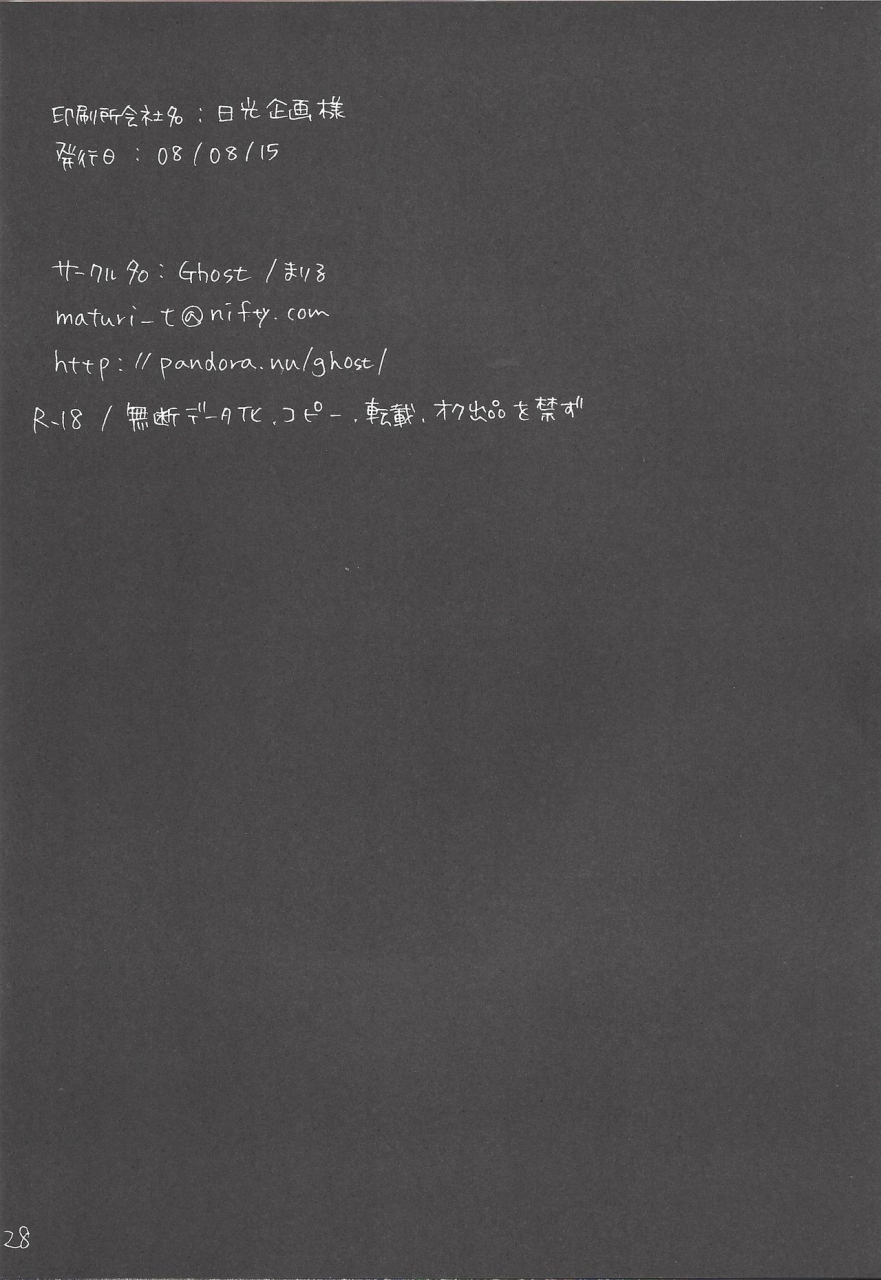 印刷所会社名：日光企画様
発行日：08/08/15
サークル名：Ghost/まりる
maturi_t@nifty.com
http://pandora.nu/ghost/
R-18 / 無断データ化、コピー、転載、オク出品を禁ず
28